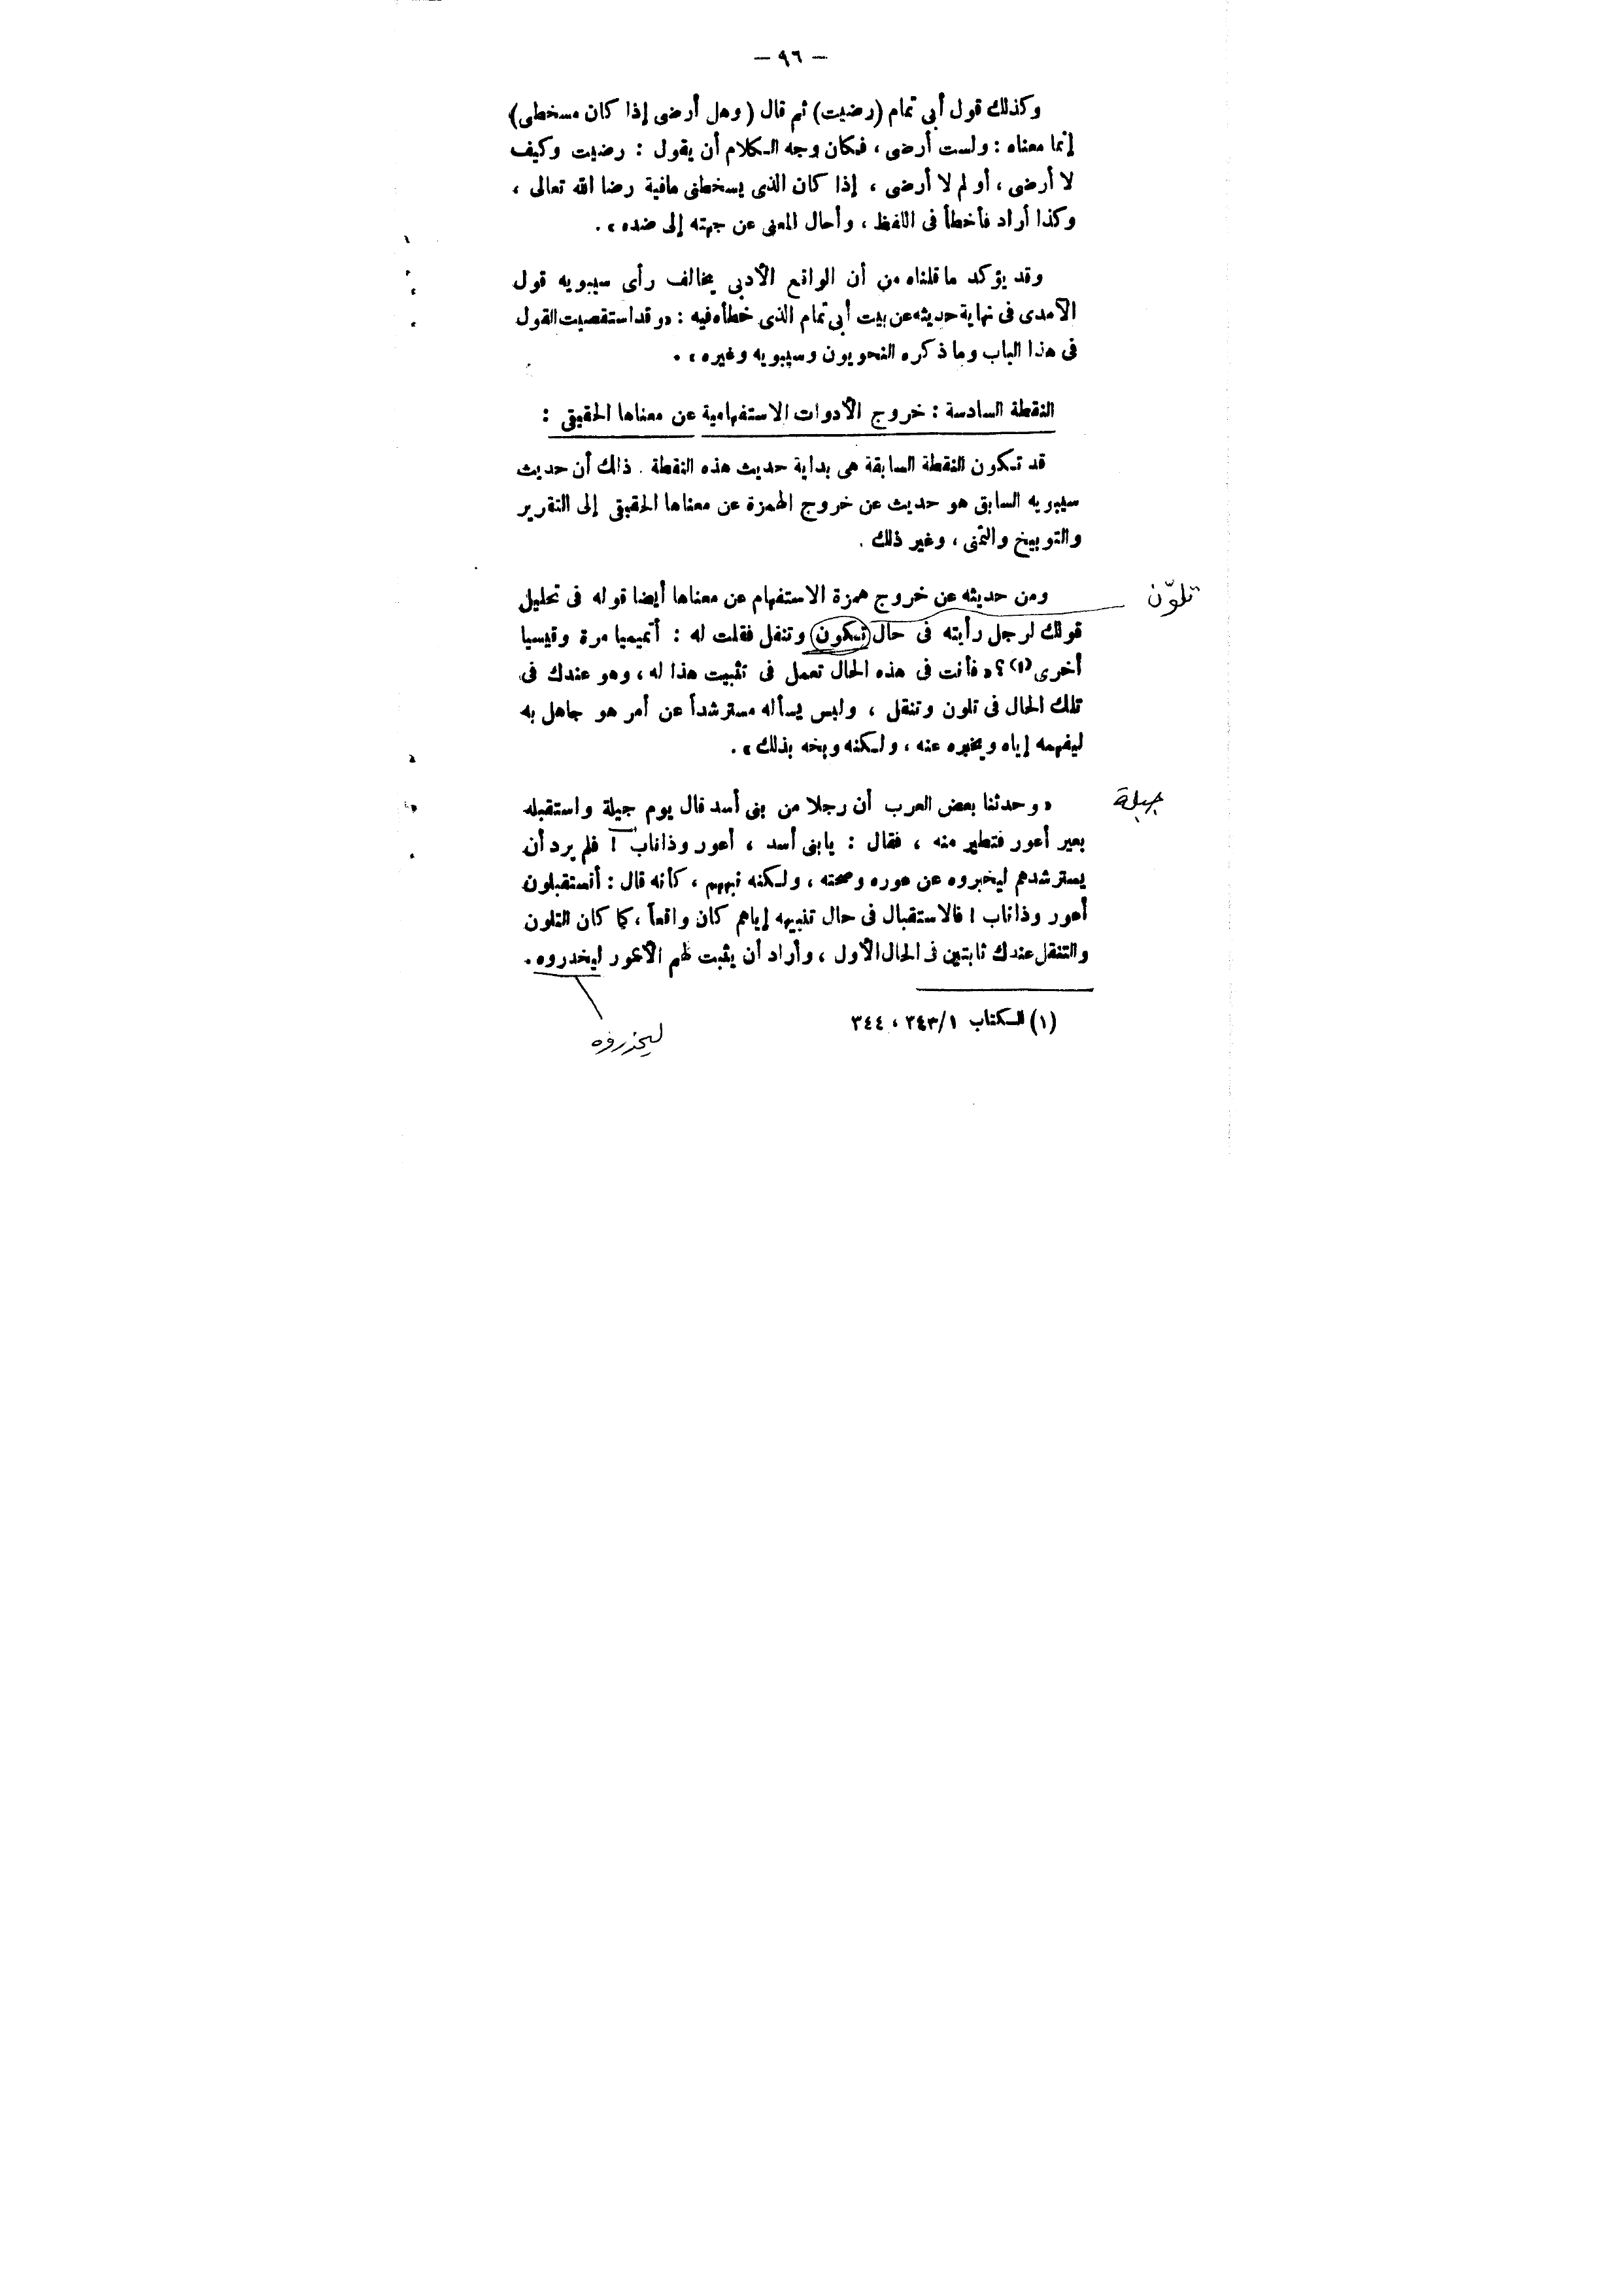 — ٩٦ —
وكذلك قول أبى تمام (رضيت) ثم قال (وهل أرضى إذا كان مسخطى)
إنما معناه : ولست أرضى ، فكان وجه الكلام أن يقول : رضيت وكيف
لا أرضى ، أو لم لا أرضى ، إذا كان الذى يسخطنى مافية رضا الله تعالى ،
وكذا أراد فأخطأ فى اللفظ ، وأحال المعنى عن جهته إلى ضده » .
وقد يؤكد ما قلناه من أن الواقع الأدبى يخالف رأى سيبويه قول
الآمدى فى نهاية حديثه عن بيت أبى تمام الذى خطأه فيه : « وقد استقصيت القول
فى هذا الباب وما ذكره النحويون وسيبويه وغيره » .
النقطة السادسة : خروج الأدوات الاستفهامية عن معناها الحقيقى :
قد تكون النقطة السابقة هى بداية حديث هذه النقطة . ذلك أن حديث
سيبويه السابق هو حديث عن خروج الهمزة عن معناها الحقيقى إلى التقرير
والتوبيخ والتمنى ، وغير ذلك .
ومن حديثه عن خروج همزة الاستفهام عن معناها أيضا قوله فى تحليل
تلوّن
قولك لرجل رأيته فى حال تكون وتنقل فقلت له : أتميميا مرة وقيسيا
أخرى (١) ؟ « فأنت فى هذه الحال تعمل فى تثبيت هذا له ، وهو عندك فى
تلك الحال فى تلون وتنقل ، وليس يسأله مسترشداً عن أمر هو جاهل به
ليفهمه إياه ويخبره عنه ، ولكنه وبخه بذلك » .
« وحدثنا بعض العرب أن رجلا من بنى أسد قال يوم جيلة واستقبله
جبلة
بعير أعور فتطير منه ، فقال : يابنى أسد ، أعور وذاناب ! فلم يرد أن
يسترشدهم ليخبروه عن عوره وصحته ، ولكنه نبههم ، كأنه قال : أتستقبلون
أعور وذاناب ! فالاستقبال فى حال تنبيهه إياهم كان واقعاً ، كما كان التلون
والتنقل عندك ثابتين فى الحال الأول ، وأراد أن يثبت لهم الأعور ليخدروه .
(١) الكتاب ١/٣٤٣ ، ٣٤٤